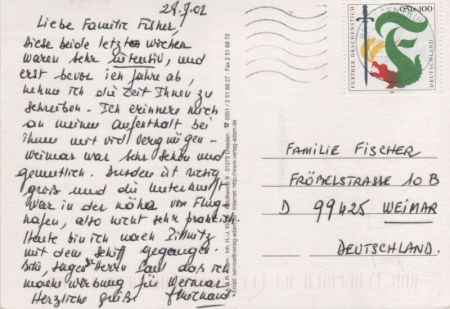 28.7.02
Liebe Familie Fisher,
diese beide letzten wochen
waren sehr intensiv, und
erst bevor ich fahre ab,
nehme ich die Zeit Ihnen zu
schreiben. Ich erinnere mich
an meinen Aufenthalt bei
Ihnen mit viel Vergnügen.
Weimar war sehr schön und
gemütlich. Dresden ist riesig
groß und die unterkunft
war in der nähe vom Flug-
hafen, also nicht sehr praktisch.
Heute bin ich nach
mit dem Schiff gegangen.
Bitte, sagen Herrn Paul das ich
mache werbung für Weimar
Herzliche grüße
01279 Dresden
FURTHER DRACHENSTICH
0,56 1,00
DEUTSCHLAND
FAMILIE FISCHER
FRÖBELSTRASSE 10 B
D 99425 WEIMAR
DEUTSCHLAND.